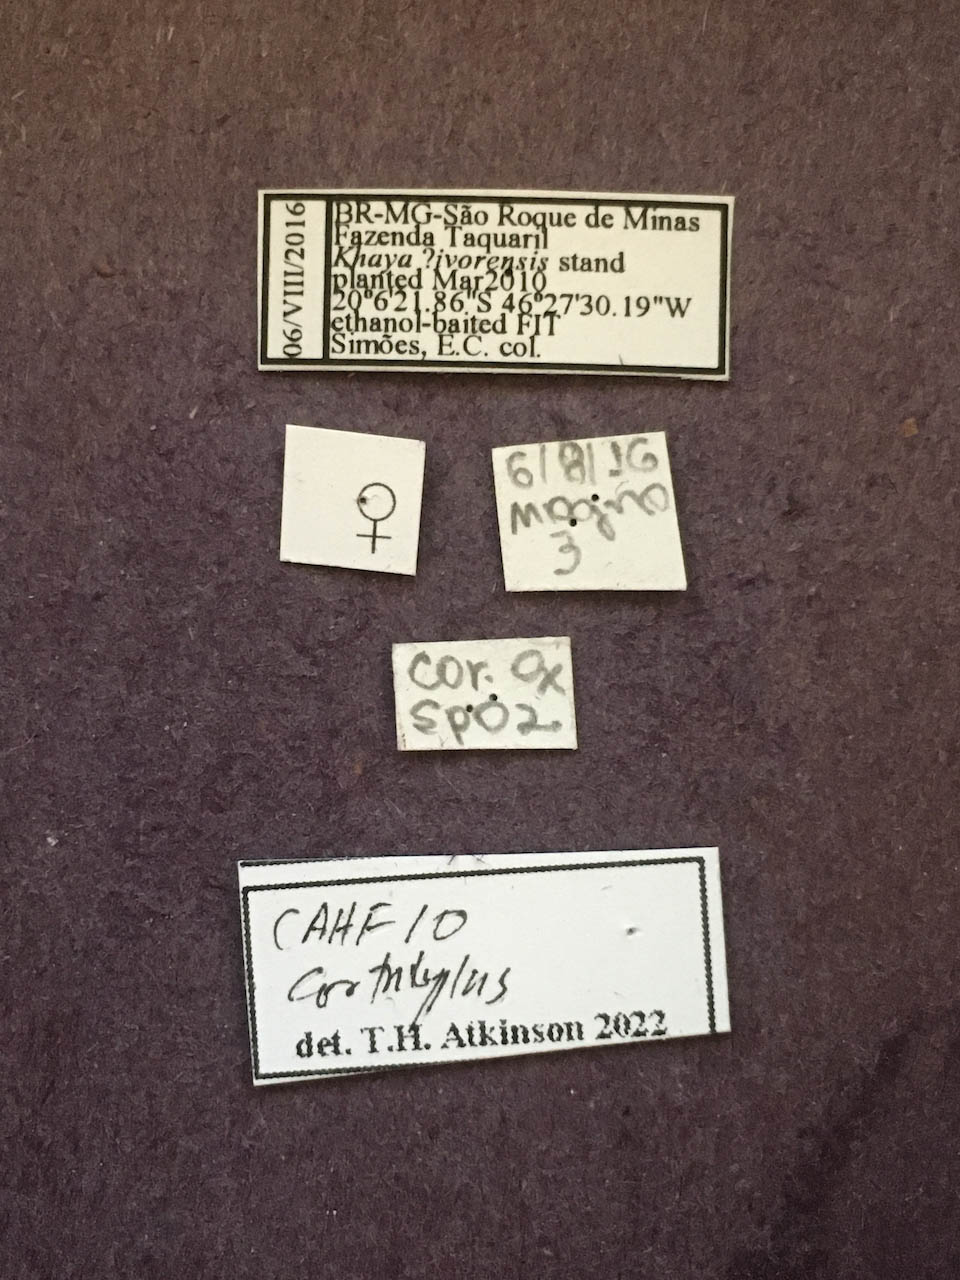 06/VIII/2016
BR-MG-São Roque de Minas
Fazenda Taquaril
Khaya ?ivorensis stand
planted Mar2010
20°6'21.86"S 46°27'30.19"W
ethanol-baited FIT
Simões, E.C. col.
♀
6/8/16
mogno
3
Cor. Ox
sp02
CAHF10
Corthylus
det. T.H. Atkinson 2022